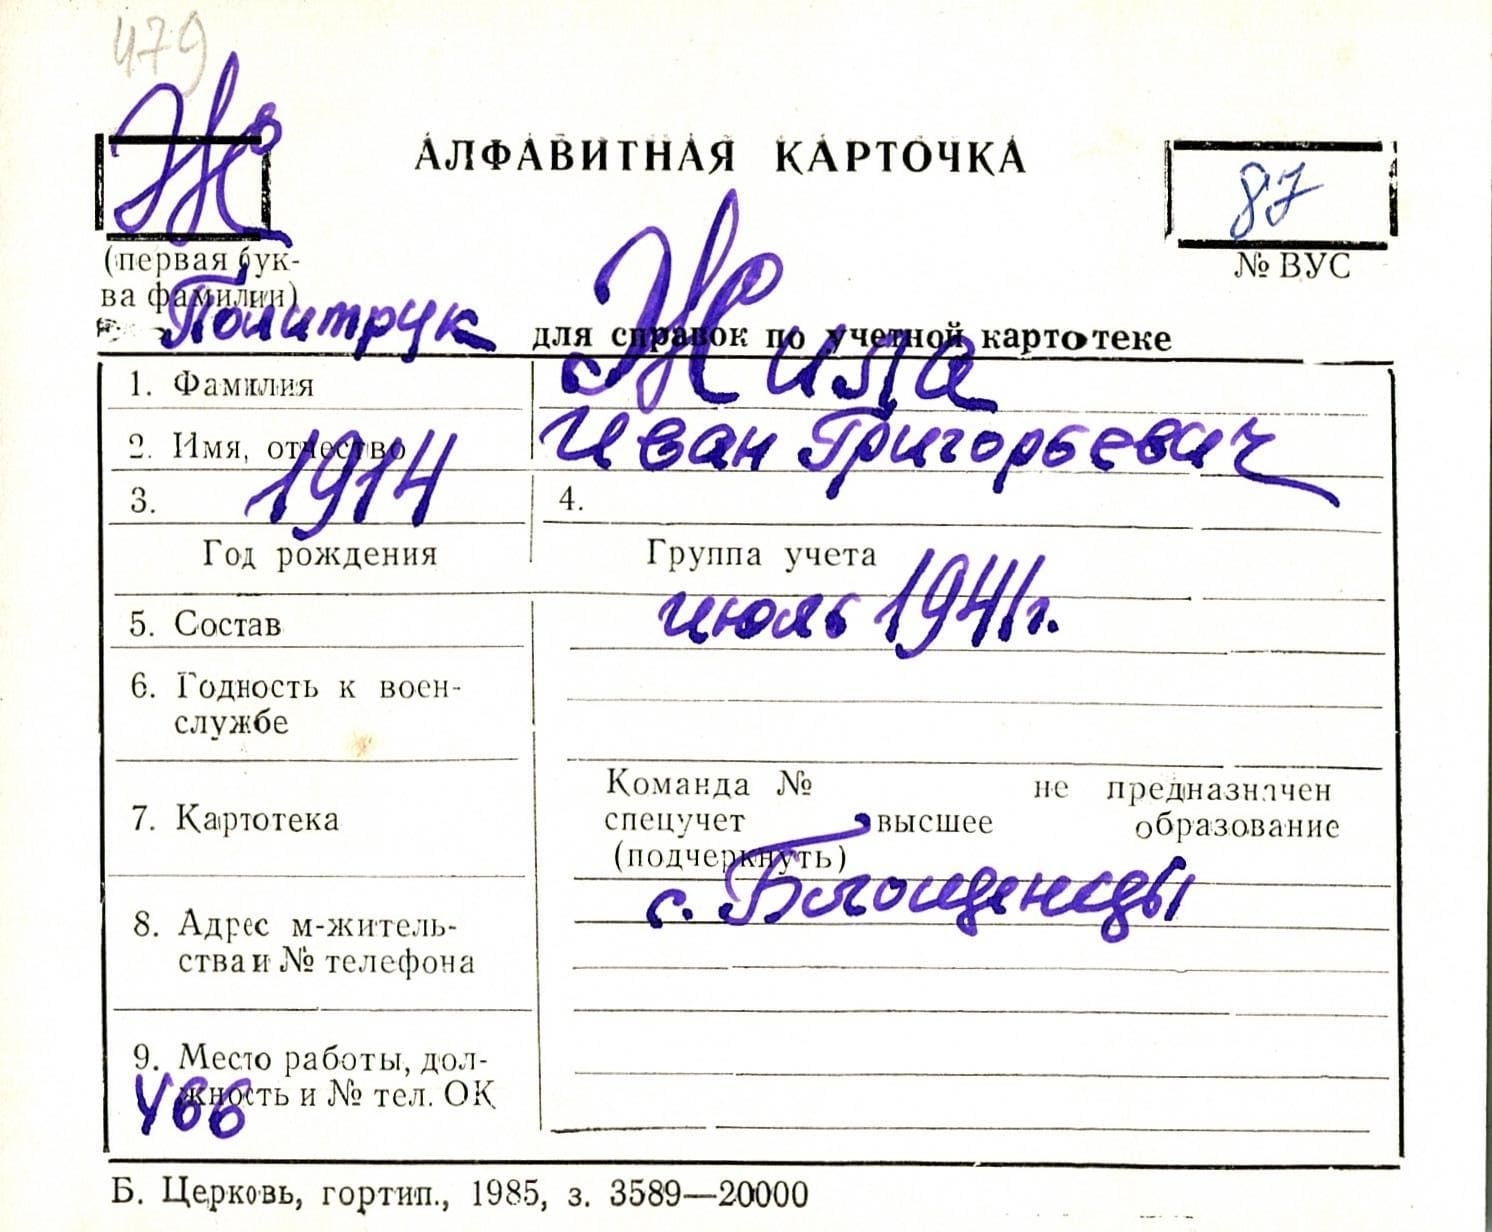 479
Ж
АЛФАВИТНАЯ КАРТОЧКА
87
(первая бук-
ва фамилии)
№ ВУС
Политрук
для справок по учетной картотеке
1. Фамилия
Жила
2. Имя, отчество
Иван Григорьевич
3. 1914
4.
Год рождения
Группа учета
5. Состав
июль 1941 г.
6. Годность к воен-
службе
7. Картотека
Команда № не предназначен
спецучет высшее образование
(подчеркнуть)
8. Адрес м-житель-
ства и № телефона
с.
9. Место работы, дол-
жность и № тел. ОК
466
Б. Церковь, гортип., 1985, з. 3589—20000